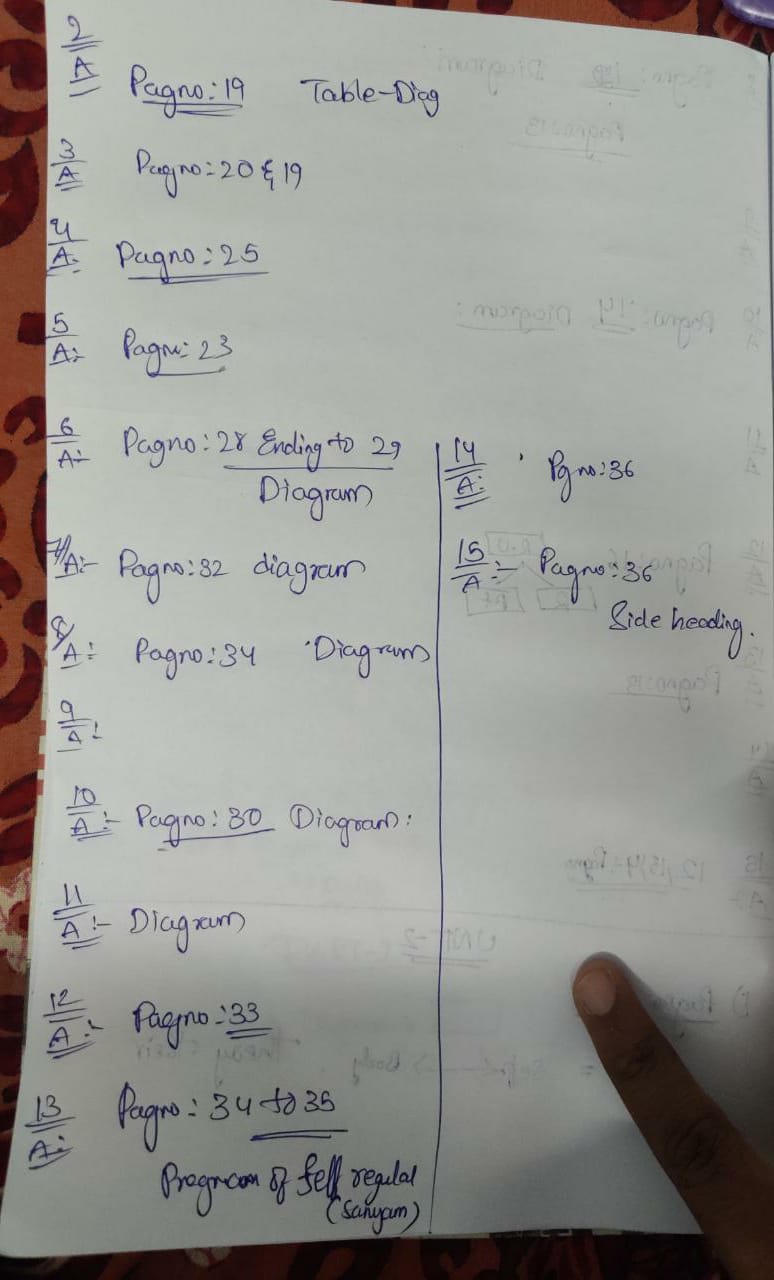 2/A Pagno: 19 Table-Diag
3/A Pagno: 20 & 19
4/A: Pagno: 25
5/A:- Pagno: 23
6/A:- Pagno: 28 Ending to 29
Diagram
7/A:- Pagno: 32 diagram
8/A: Pagno: 34 Diagram
9/A:
10/A:- Pagno: 30 Diagram:
11/A:- Diagram
12/A:- Pagno: 33
13/A: Pagno: 34 to 35
of self regulat
(Sanyam)
14/A: Pgno: 36
15/A:- Pagno: 36
Side heading.